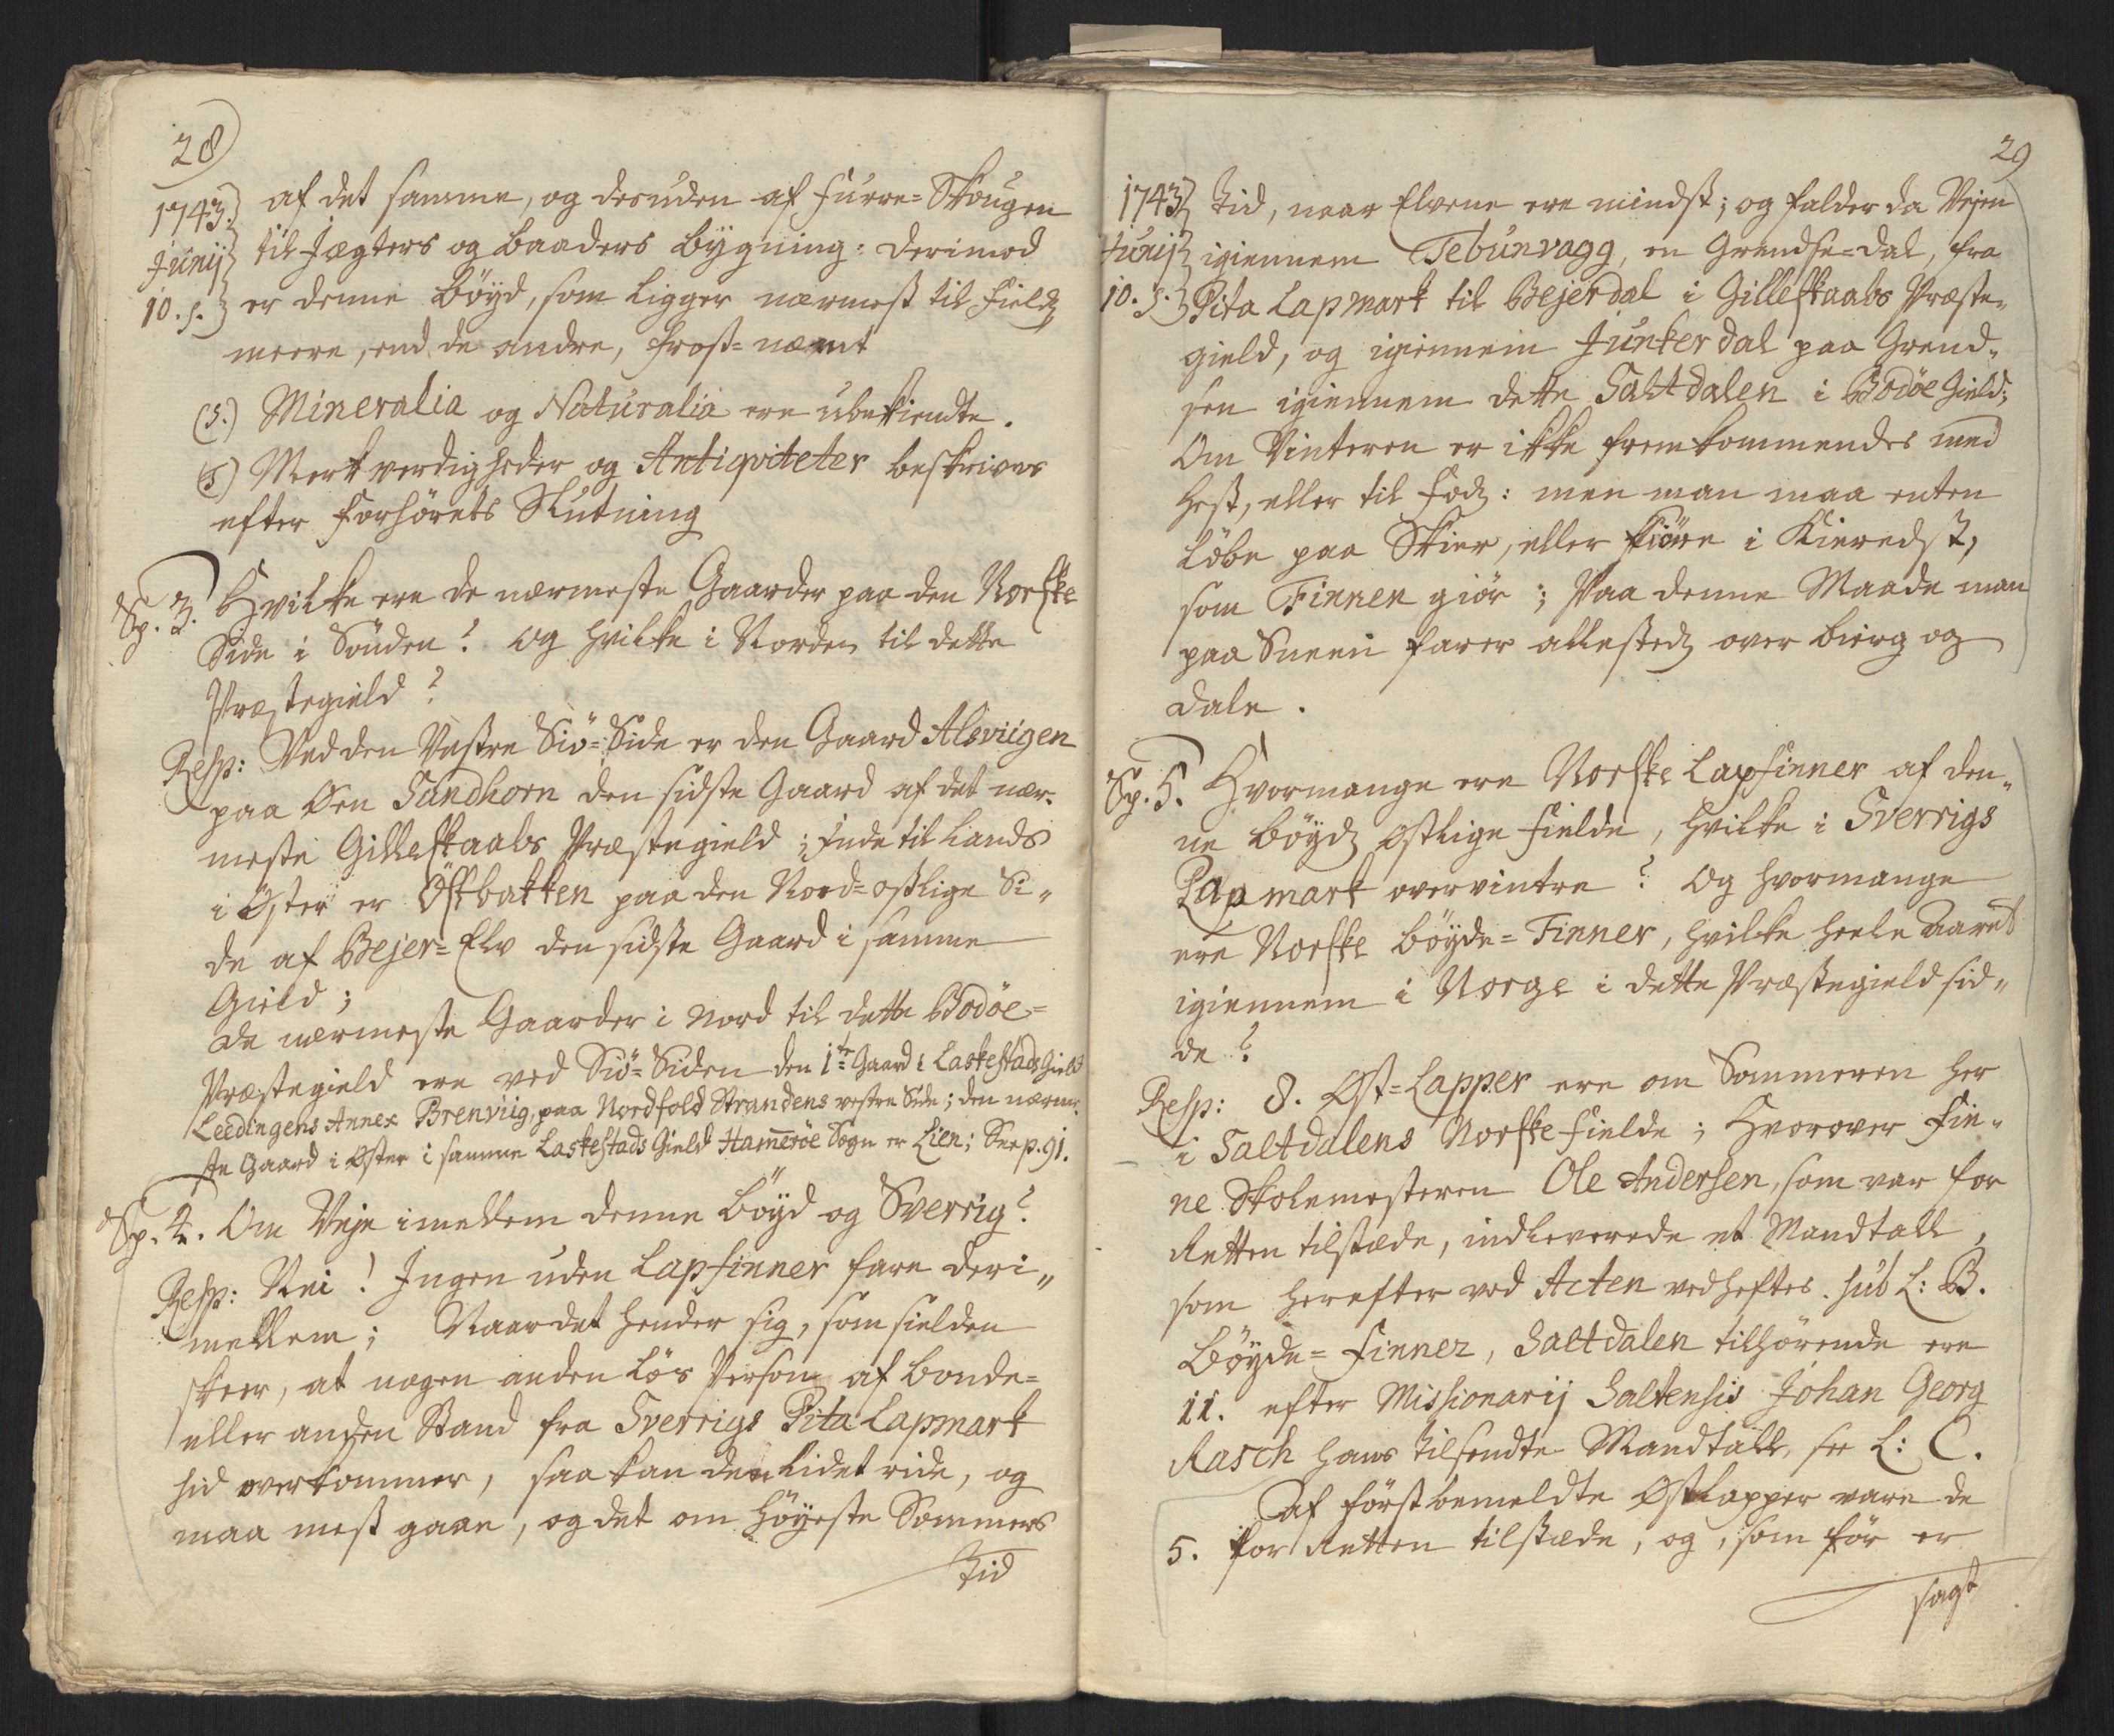 28
1743. af det samme, og desuden af Furre=Skougen
Junij til Jægters og Baaders Bygning: derimod
10. s. er denne Böyd, som ligger nærmest til Field,
meere, end de andre, frost=næmt
(s.) Mineralia og Naturalia ere ubekiendte.
(t) Merkverdigheder og Antiqviteter beskrives
efter Forhörets Slutning
Sp. 3. Hvilke ere de nærmeste Gaarder paa den Norske
Side i Sönden? og hvilke i Norden til dette
Præstegield?
Resp: Ved den Vestre Siö=Side er den Gaard Alsviigen
paa Øen Sandhorn den sidste Gaard af det nær-
meste Gilleskaals Præstegield; Inde til Lands
i Øster er Östbakken paa den Nord=ostlige Si-
de af Bejer=Elv den sidste Gaard i samme
Gield;
de nærmeste Gaarder i Nord til dette Bodöe=
Præstegield ere ved Siö=Siden den 1te Gaard i Laskestads Gield
Leedingens Annex Brenviig, paa Nordfold Strandens vestre Side; den nærme-
ste Gaard i Øster i samme Laskestads Gield Hammeröe Sogn er Lien; See p. 91.
Sp. 4. Om Veje imellem denne Böyd og Sverrig?
Resp: Nei! Ingen uden Lapfinner fare deri-
mellem; Naar det hender sig, som sielden
skeer, at nogen anden lös Person af Bonde=
eller anden Stand fra Sverrigs Pita Lapmark
hid overkommer, saa kan den lidet ride, og
maa mest gaae, og det om höyeste Sommers
Tid
29
1743 Tid, naar Elvene ere mindst; og falder da Vejen
Junij igiennem Tebunvagg, en Grendse=dal, fra
10. s. Pita Lapmark til Bejerdal i Gilleskaals Præste-
gield, og igiennem Junkerdal paa Grend-
sen igiennem dette Saltdalen i Bodöe Gield;
Om Vinteren er ikke fremkommendes med
Hest, eller til Fods: men man maa enten
löbe paa Skier, eller kiöre i Kieredst,
som Finnen giör; Paa denne Maade man
paa Sneen farer allesteds over Bierg og
Dale.
Sp. 5. Hvormange ere Norske Lapfinner af den-
ne Böyds Ostlige Fielde, hvilke i Sverrigs
Lapmark overvintre? og hvormange
ere Norske Böyde=Finner, hvilke heele Aaret
igiennem i Norge i dette Præstegield sid-
de?
Resp: 8. Øst=Lapper ere om Sommeren her
i Saltdalens Norske Fielde; Hvorover Fin-
ne Skolemesteren Ole Andersen, som var for
Retten tilstæde, indleverede et Mandtall,
som herefter ved Acten vedheftes. sub L: B.
Böyde=Finner, Saltdalen tilhörende ere
11. efter Missionarij Saltensis Johan Georg
Rasch hans tilsendte Mandtall, see L: C.
Af förstbemeldte Østlapper vare de
5. for Retten tilstæde, og, som för er
sagt